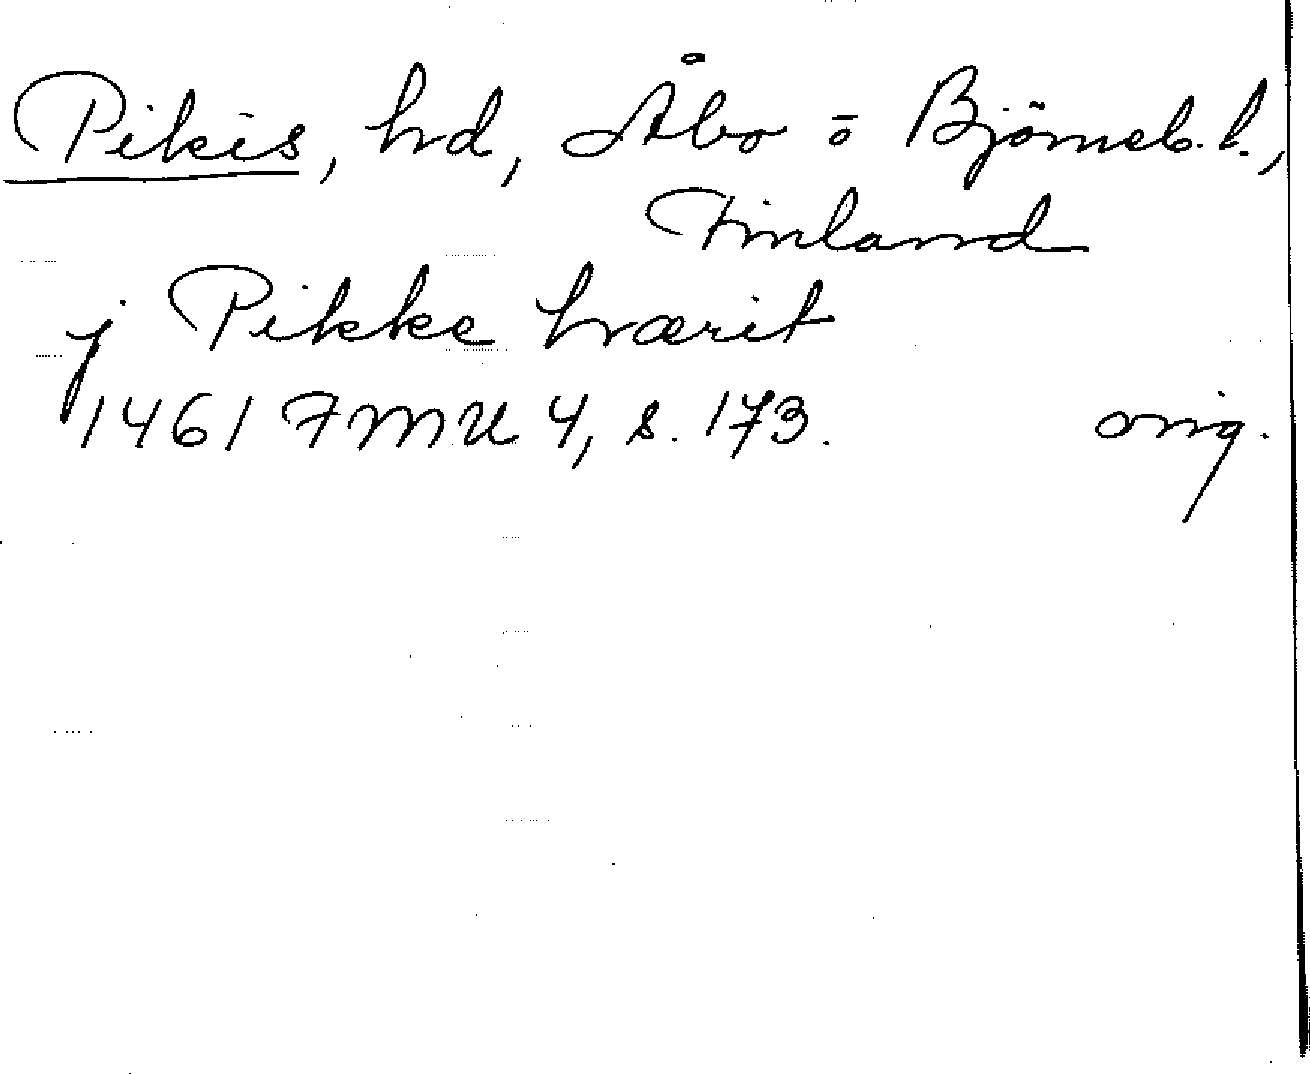 Pikis, hd, Åbo o Björneb. l.,
Finland
j Pikke hværit
1461 FMU 4, s. 173. orig.